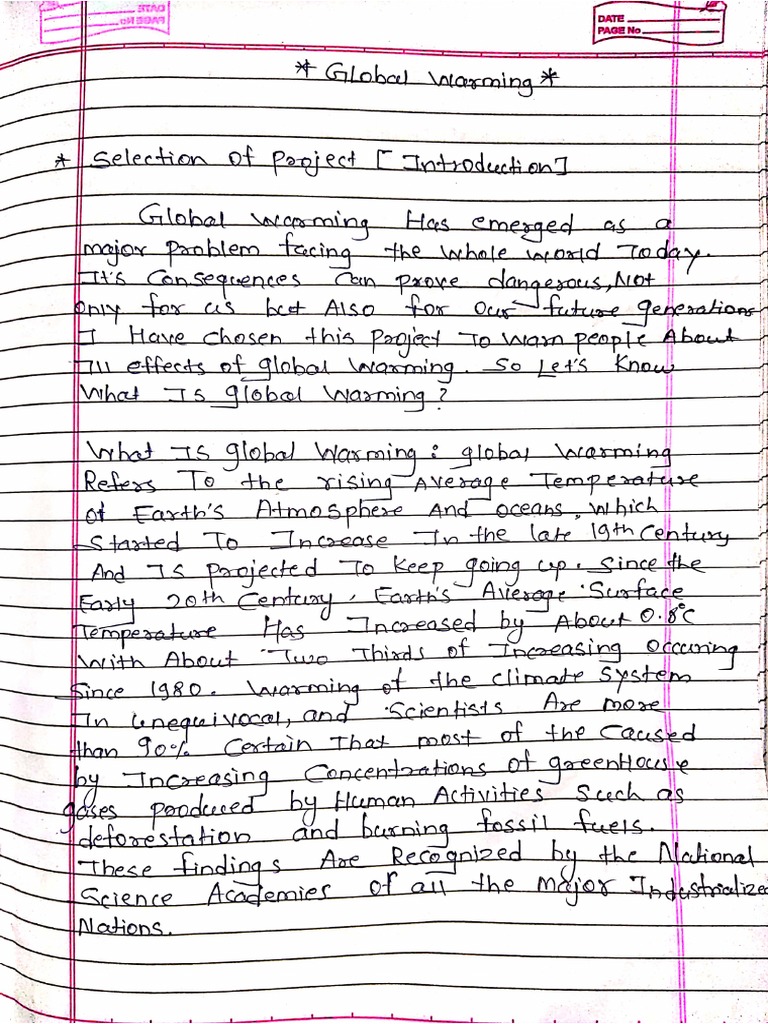 DATE
PAGE No.
* Global Warming *
* Selection of Project [Introduction]
Global warming Has emerged as a
major problem facing the whole world Today.
It's Consequences Can prove dangerous, Not
only for us but Also for our future generations
I Have chosen this Project To warn people About
Ill effects of global warming. So Let's Know
What Is global Warming?
What Is global Warming : global Warming
Refers To the rising Average Temperature
of Earth's Atmosphere And oceans, Which
Started To Increase In the late 19th Century
And Is projected To Keep going up. Since the
Early 20th Century, Earth's Average Surface
Temperature Has Increased by About 0.8°C
With About Two Thirds of Increasing Occuring
Since 1980. Warming of the climate System
In Unequivocal, and Scientists Are more
than 90% Certain That most of the Caused
by Increasing Concentrations of greenHouse
gases produced by Human Activities Such as
deforestation and burning fossil fuels.
These findings Are Recognized by the National
Science Academies of all the major Industrialize
Nations.